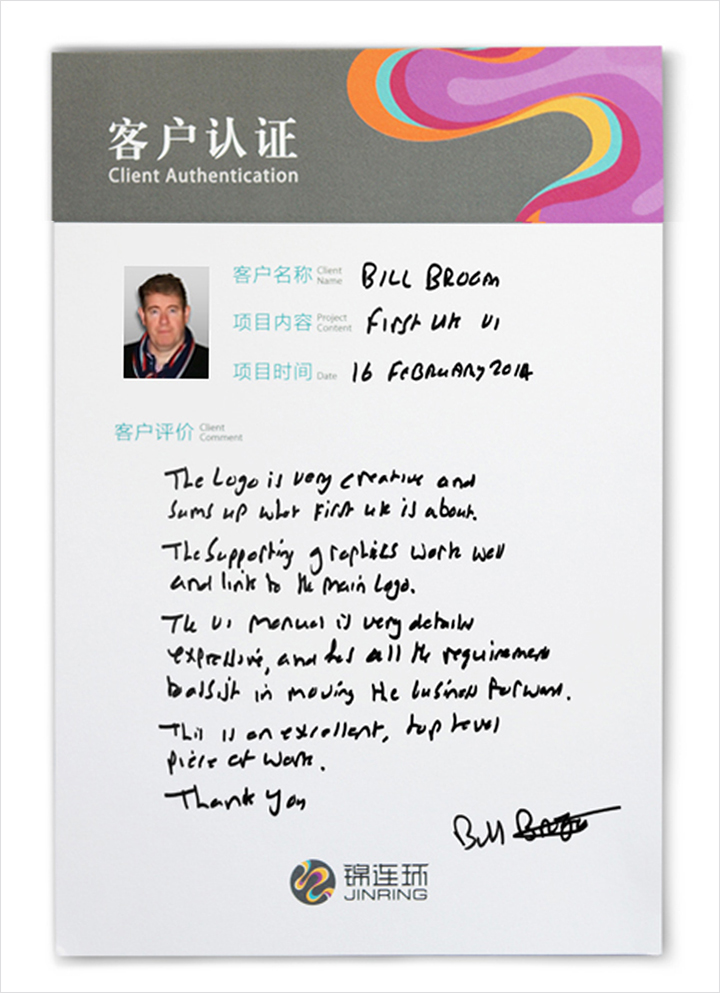 客户认证
Client Authentication
客户名称 Client Name BILL BROOM
项目内容 Project Content First UK VI
项目时间 Date 16 February 2014
客户评价 Client Comment
The Logo is very creative and
sums up what First UK is about.
The Supporting graphics work well
and link to the main Logo.
The VI manual is very details
expressive, and has all the requirements
to assist in moving the business forward.
This is an excellent, top level
piece of work.
Thank You
Bill Broom
锦连环
JINRING